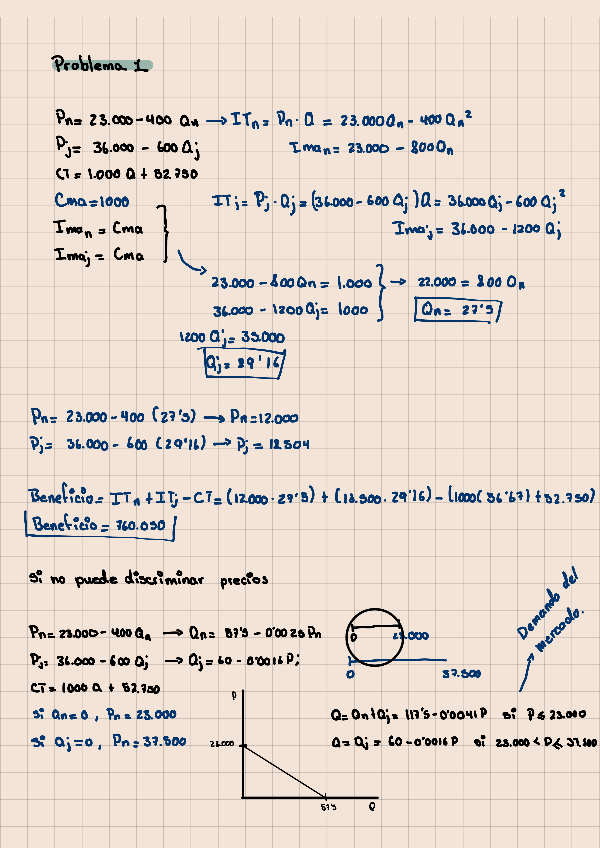 Problema 1
Pn= 23.000-400 Qn → ITn = Pn · Q = 23.000Qn - 400Qn²
Pj= 36.000 - 600 Qj Iman= 23.000 - 800Qn
CT = 1.000 Q + 52.750
Cma=1000 ITj = Pj · Qj = (36.000-600 Qj)Q = 36.000Qj-600 Qj²
Iman = Cma Imaj = 36.000 - 1200 Qj
Imaj = Cma
23.000-800Qn = 1.000 → 22.000 = 800 Qn
36.000 - 1200Qj = 1000 Qn= 27'5
1200 Qj = 35.000
Qj = 29'16
Pn= 23.000-400 (27'5) → Pn=12.000
Pj= 36.000-600 (29'16) → Pj = 18.504
Beneficio= ITn + ITj - CT = (12.000·27'5) + (18.500·29'16) - (1000(56'67)+52.750)
Beneficio = 760.050
Si no puede discriminar precios
Pn= 23.000-400Qn → Qn= 57'5 - 0'0025Pn
Pj= 36.000-600 Qj → Qj = 60 - 0'0016Pj
CT = 1000 Q + 52.750
si Qn=0, Pn = 23.000
si Qj=0, Pn= 37.500
0 23.000
0 37.500
Demanda del
mercado.
Q= Qn+Qj = 117'5-0'0041P si P≤23.000
Q= Qj = 60-0'0016P si 23.000<P≤37.500
P
23.000
57'5 Q